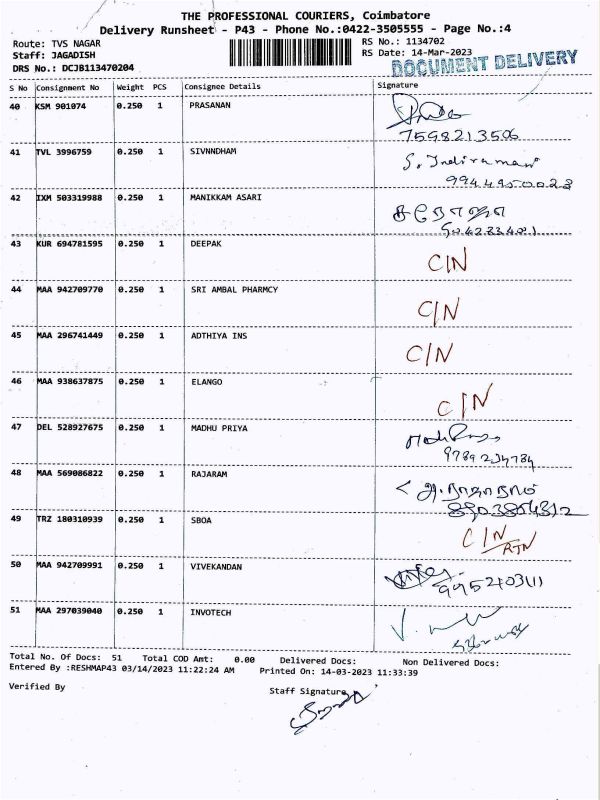 THE PROFESSIONAL COURIERS, Coimbatore
Delivery Runsheet - P43 - Phone No.:0422-3505555 - Page No.:4
Route: TVS NAGAR
RS No.: 1134702
Staff: JAGADISH
RS Date: 14-Mar-2023
DRS No.: DCJB113470204
DOCUMENT DELIVERY
S No Consignment No Weight PCS Consignee Details Signature
40 KSM 901074 0.250 1 PRASANAN
7598213506
41 TVL 3996759 0.250 1 SIVNNDHAM
9944950023
42 IXM 503319988 0.250 1 MANIKKAM ASARI
43 KUR 694781595 0.250 1 DEEPAK C/N
44 MAA 942709770 0.250 1 SRI AMBAL PHARMCY C/N
45 MAA 296741449 0.250 1 ADTHIYA INS C/N
46 MAA 938637875 0.250 1 ELANGO C/N
47 DEL 528927675 0.250 1 MADHU PRIYA
9789234784
48 MAA 569086822 0.250 1 RAJARAM அ.ராதாராம்
8903804312
49 TRZ 180310939 0.250 1 SBOA C/N
RTN
50 MAA 942709991 0.250 1 VIVEKANDAN
9952703111
51 MAA 297039040 0.250 1 INVOTECH
Total No. Of Docs: 51 Total COD Amt: 0.00 Delivered Docs: Non Delivered Docs:
Entered By :RESHMAP43 03/14/2023 11:22:24 AM Printed On: 14-03-2023 11:33:39
Verified By Staff Signature